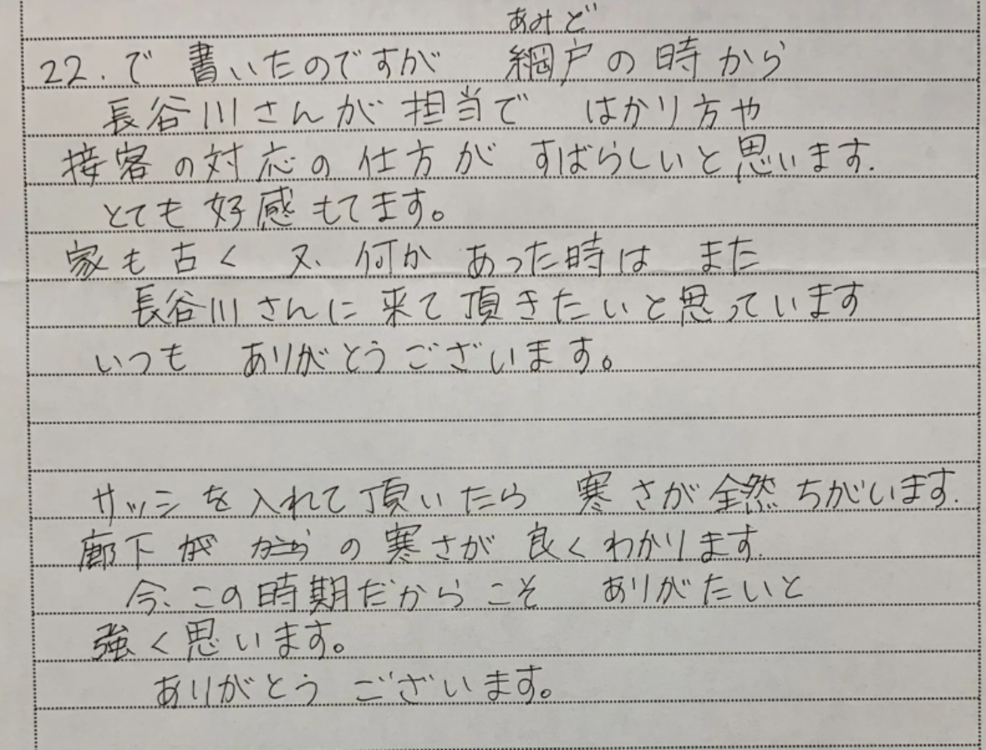 あみど
22.で 書いたのですが 網戸の時から
長谷川さんが 担当で はかり方や
接客の対応の仕方が すばらしいと思います.
とても 好感 もてます。
家も古く 又、何か あった時は また
長谷川さんに来て頂きたいと思っています
いつも ありがとうございます。
サッシを入れて頂いたら 寒さが全然ちがいます.
廊下 が から の寒さが 良くわかります.
今、この時期だからこそ ありがたいと
強く思います。
ありがとう ございます。